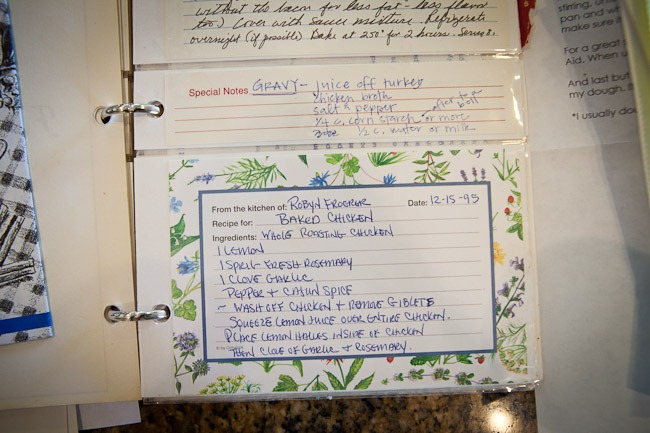 without the bacon for less fat - less flavor
too.) Cover with sauce mixture. Refrigerate
overnight (if possible) Bake at 250° for 2 hours. Serves 8.
Special Notes GRAVY - juice off turkey
chicken broth
salt & pepper
1/4 c. corn starch or more
after to boil
1/2 c. water or milk
From the kitchen of: ROBYN Date: 12-15-95
Recipe for: BAKED CHICKEN
Ingredients: WHOLE ROASTING CHICKEN
1 LEMON
1 SPRIG FRESH ROSEMARY
1 CLOVE GARLIC
PEPPER + CAJUN SPICE
~ WASH OFF CHICKEN + REMOVE GIBLETS
SQUEEZE LEMON JUICE OVER ENTIRE CHICKEN.
PLACE LEMON HALVES INSIDE OF CHICKEN
THEN CLOVE OF GARLIC + ROSEMARY.
stirring, un
pan and wh
make sure it
For a great s
Aid. When u
And last but
my dough. B
*I usually dou